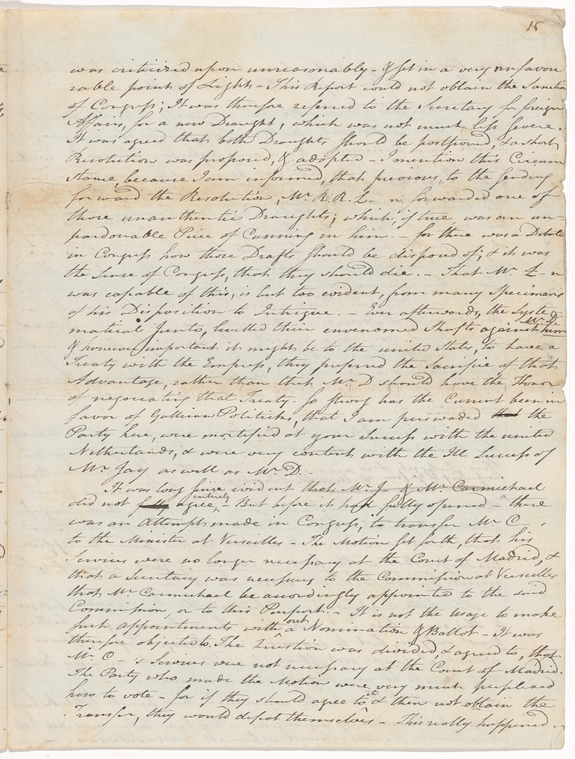 15
was criticized upon unreasonably - & set in a very unfavou
rable point of Light - This Report could not obtain the Sanction
of Congress; It was therefore referred to the Secretary for foreign
Affairs, for a new Draught, which was not much less severe.
It was agreed that both Draughts should be postponed, & a short
Resolution was proposed, & adopted - I mention this Circum
stance because I am informed, that previous to the sending
forward the Resolution, Mr. R. R. L- n forwarded one of
those unauthentic Draughts; which if true, was an un-
pardonable Piece of Cunning in him - for there was a Debate
in Congress how those Drafts should be disposed of; & it was
the Sense of Congress, that they should die. - That Mr. L- n
was capable of this, is but too evident, from many Specimens
of his Disposition to Intrigue. - Ever afterwards, the Syste
matical Junto, levelled their envenomed Shafts against him
& however important it might be to the united States, to have a
Treaty with the Empress, they preferred the Sacrifice of that
Advantage, rather than that Mr. D should have the Honor
of negociating that Treaty. So strong has the Current been in
favor of Gallican Politicks, that I am perswaded the
Party here, were mortified at your Success with the united
Netherlands, & were very content with the Ill Success of
Mr. Jay as well as Mr. D. -
It was long since evident that Mr. J & Mr. Carmichael
did not fully agree, entirely - But before it was fully opened - there
was an Attempt made in Congress, to transfer Mr. C.
to the Minister at Versailles - The Motion set forth, that his
Services were no longer necessary at the Court of Madrid, &
that a Secretary was necessary to the Commission at Versailles
that Mr. Carmichael be accordingly appointed to the said
Commission, or to this Purport. - It is not the Usage to make
such appointments without a Nomination & Ballot - It was
therefore objected to. The Question was divided & agreed to, that
Mr. C - 's Services were not necessary at the Court of Madrid.
The Party who made the Motion were very much perplexed
how to vote - for if they should agree to it & then not obtain the
Transfer, they would defeat themselves - This really happened.